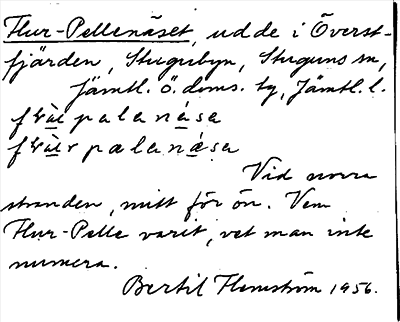 Flur-Pellenäset, udde i Överst-
fjärden, Stugubyn, Stuguns sn,
Jämtl. ö. doms. tg, Jämtl. l.
palanása
palanása
Vid norra
stranden, mitt för ön. Vem
Flur-Pelle varit, vet man inte
numera.
Bertil Flemström 1956.